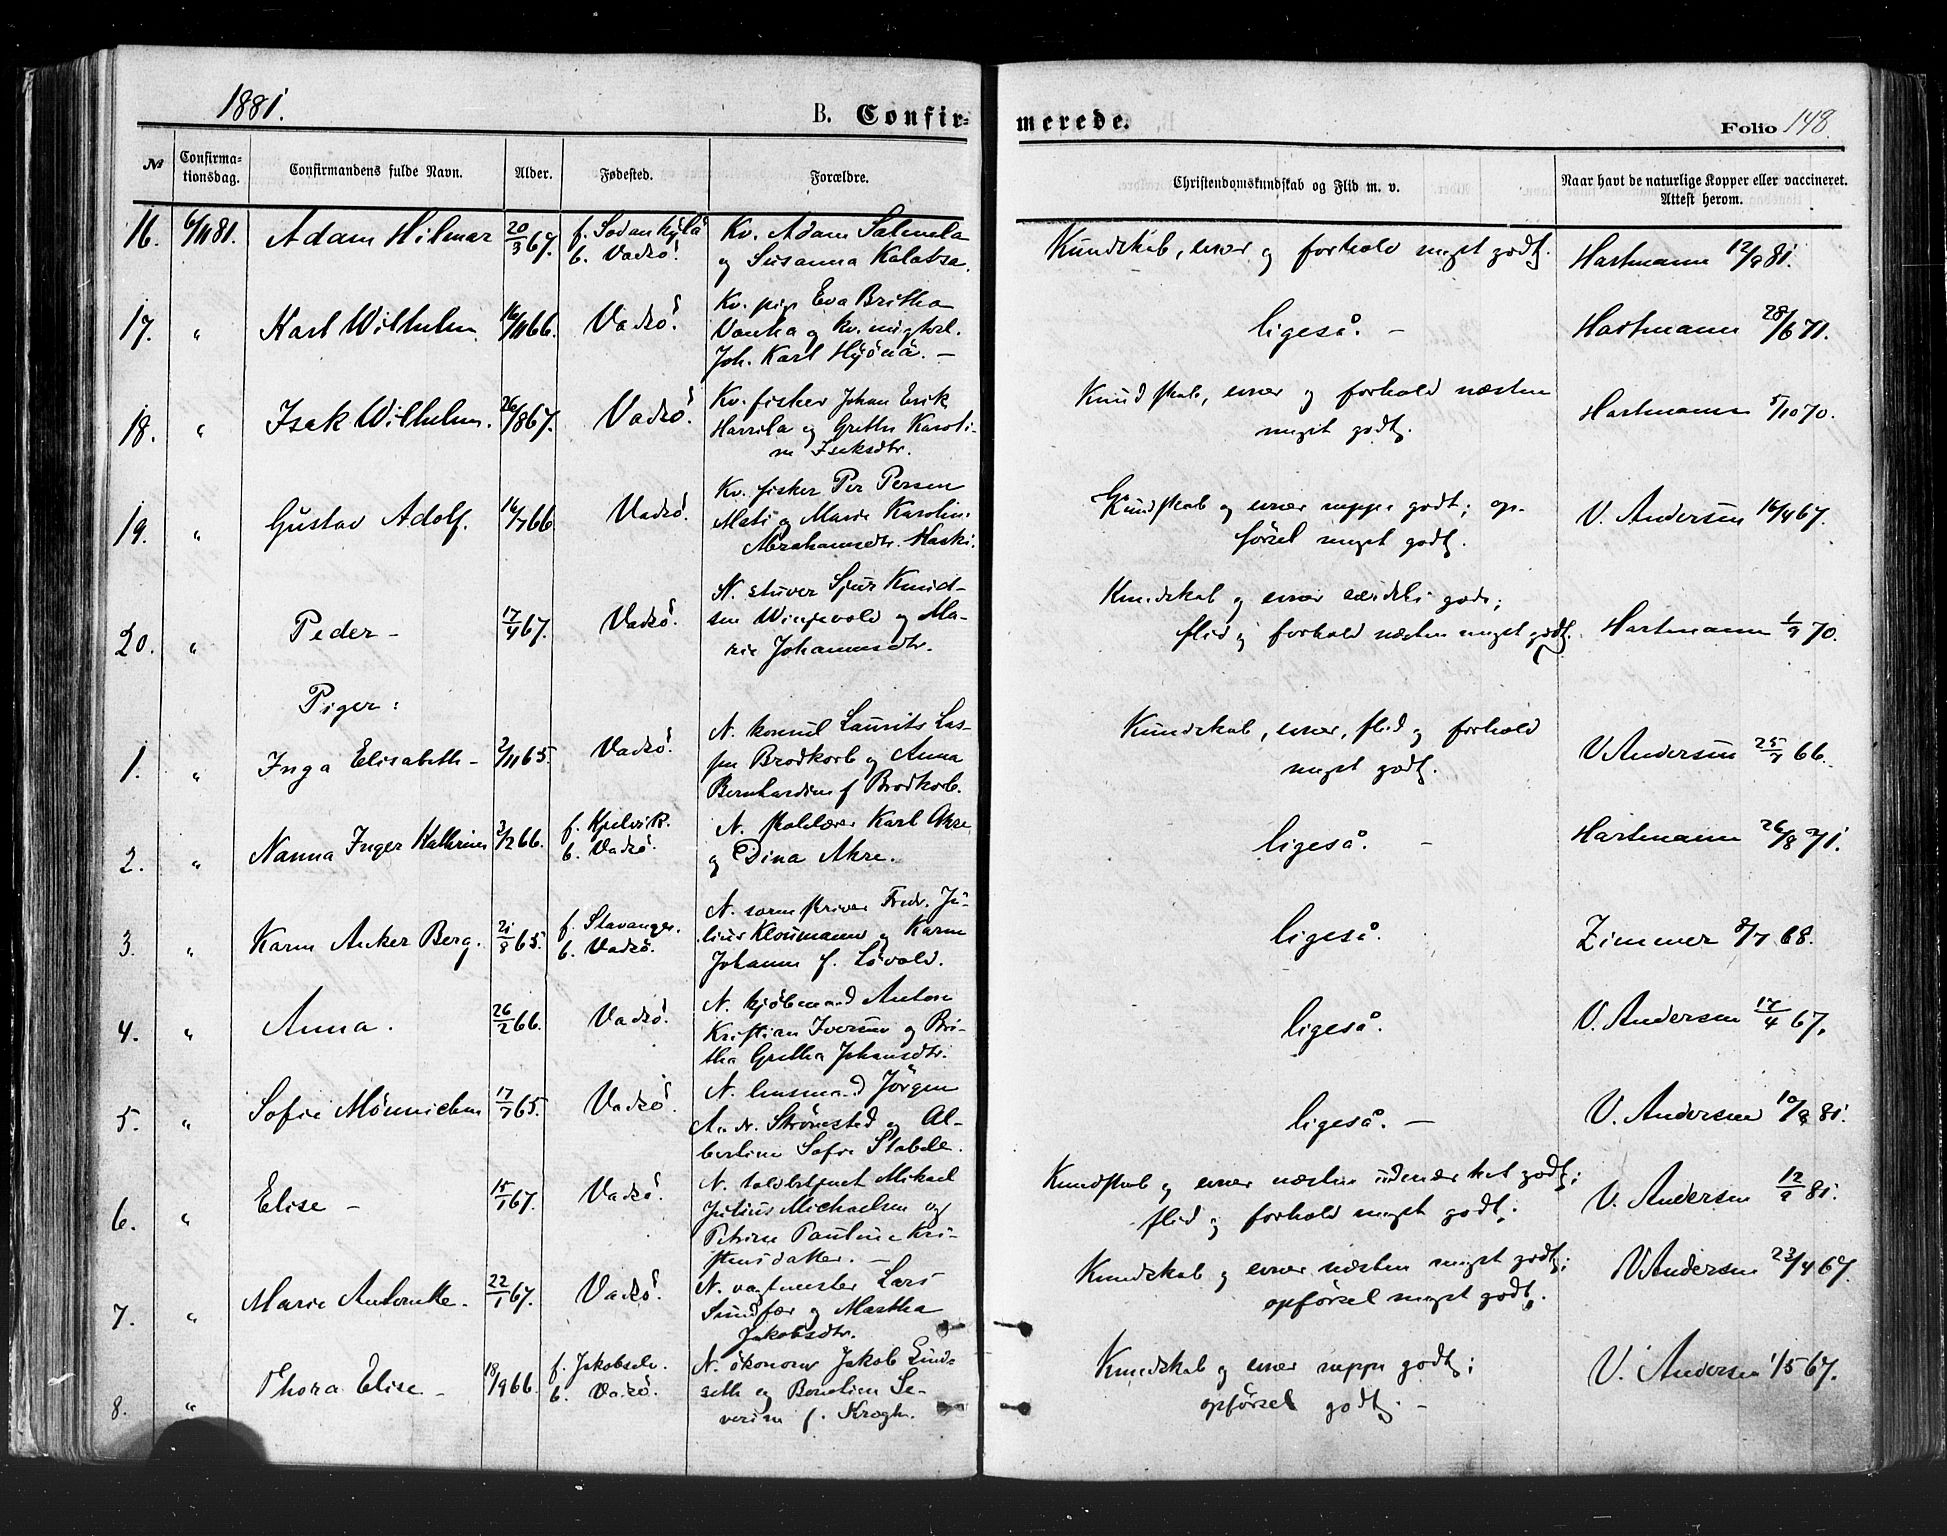 1881.
B. Confir-
merede.
Folio 148.
No
Confirma-
tionsdag.
Confirmandens fulde Navn.
Alder.
Fødested.
Forældre.
Christendomskundskab og Flid m. v.
Naar havt de naturlige Kopper eller vaccineret.
Attest herom.
16. 6/11 81. Adam Hilmar 20/3 67. f. Sodankylä
b. Vadsö.
Kv. Adam Salmela
og Susanna Kalabsa.
Kundskab, evner og forhold meget godt.
Hartmann 12/9 81.
17. " Karl Wilhelm. 16/11 66. Vadsö.
Kv. pige Eva Britha
Vanha og kv.
Joh. Karl Hyönä. —
ligeså. —
Hartmann 28/6 71.
18. " Isak Wilhelm. 26/8 67. Vadsö.
Kv. fisker Johan Erik
Harrila og Grethe Karoli-
ne Isaksdtr.
Kundskab, evner og forhold næsten
meget godt.
Hartmann 5/10 70.
19. " Gustav Adolf. 16/7 66. Vadsö.
Kv. fisker Per Persen
Mati og Marie Karoline
Abrahamsdtr. Haski.
Kundskab og evner neppe godt; op-
førsel meget godt.
V. Andersen 16/4 67.
20. " Peder — 17/4 67. Vadsö.
N. stuver Sjur Knud-
sen Winjevold og Ma-
rie Johannesdtr.
Kundskab og evner særdeles gode;
flid og forhold næsten meget godt.
Hartmann 1/9 70.
Piger:
1. " Inga Elisabeth — 2/11 65. Vadsö.
N. konsul Laurits Las-
sen Brodkorb og Anna
Bernhardine f Brodkorb.
Kundskab, evner, flid og forhold
meget godt.
V. Andersen 25/7 66.
2. " Nanna Inger Kathrine 3/12 66. f. Kjelvik.
b. Vadsö.
N. skolelærer Karl Akre
og Dina Akre.
ligeså. —
Hartmann 26/8 71.
3. " Karen Anker Berg. 21/8 65. f. Stavanger.
b. Vadsö.
N. sorenskriver Fredr. Ju-
lius Kloumann og Karen
Johanne f. Lövold.
ligeså.
Zimmer 8/7 68.
4. " Anna. 26/2 66. Vadsö.
N. kjöbmand Anton
Kristian Iversen og Bri-
tha Gretha Johansdtr.
ligeså.
V. Andersen 17/4 67.
5. " Sofie Mönnichen 17/7 65. Vadsö.
N. lensmand Jörgen
Andr. Strömsted og Al-
bertine Sofie Stabell.
ligeså. —
V. Andersen 10/9 81.
6. " Elise — 15/1 67. Vadsö.
N. toldbetjent Mikael
Julius Michaelsen og
Petrine Pauline Kri-
stensdatter. —
Kundskab og evner næsten udmærket godt;
flid og forhold meget godt.
V. Andersen 12/9 81.
7. " Marie Antonette. 22/1 67. Vadsö.
N. vagtmester Lars
Sundfær og Martha
Jakobsdtr.
Kundskab og evner næsten meget godt;
opførsel meget godt.
V. Andersen 23/4 67.
8. " Thora Elise — 18/9 66. f. Jakobselv.
b. Vadsö.
N. ökonom Jakob Lind-
seth og Bendine Se-
verine f. Krogh.
Kundskab og evner neppe godt;
opførsel godt. —
V. Andersen 1/5 67.